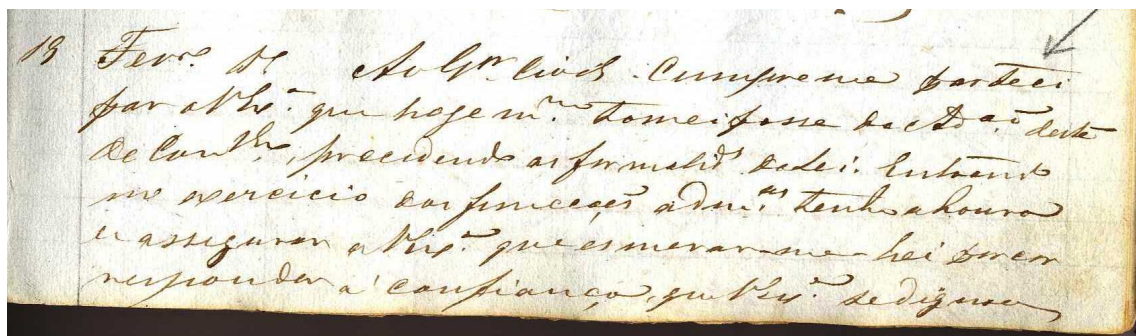 19 Fever.º 18 Ao Gr. Civil. Cumpre me partici
par a V. Ex.ª que hoje m.mo tomei posse da Ad.ção deste
de Con.lho, precedendo as formalid.s da Lei. Entrando
no exercicio das funcções adm.as tenho a honra
e assegurar a V. Ex.ª que esmerar-me hei por cor
responder á confiança, que V. Ex.ª se dignou